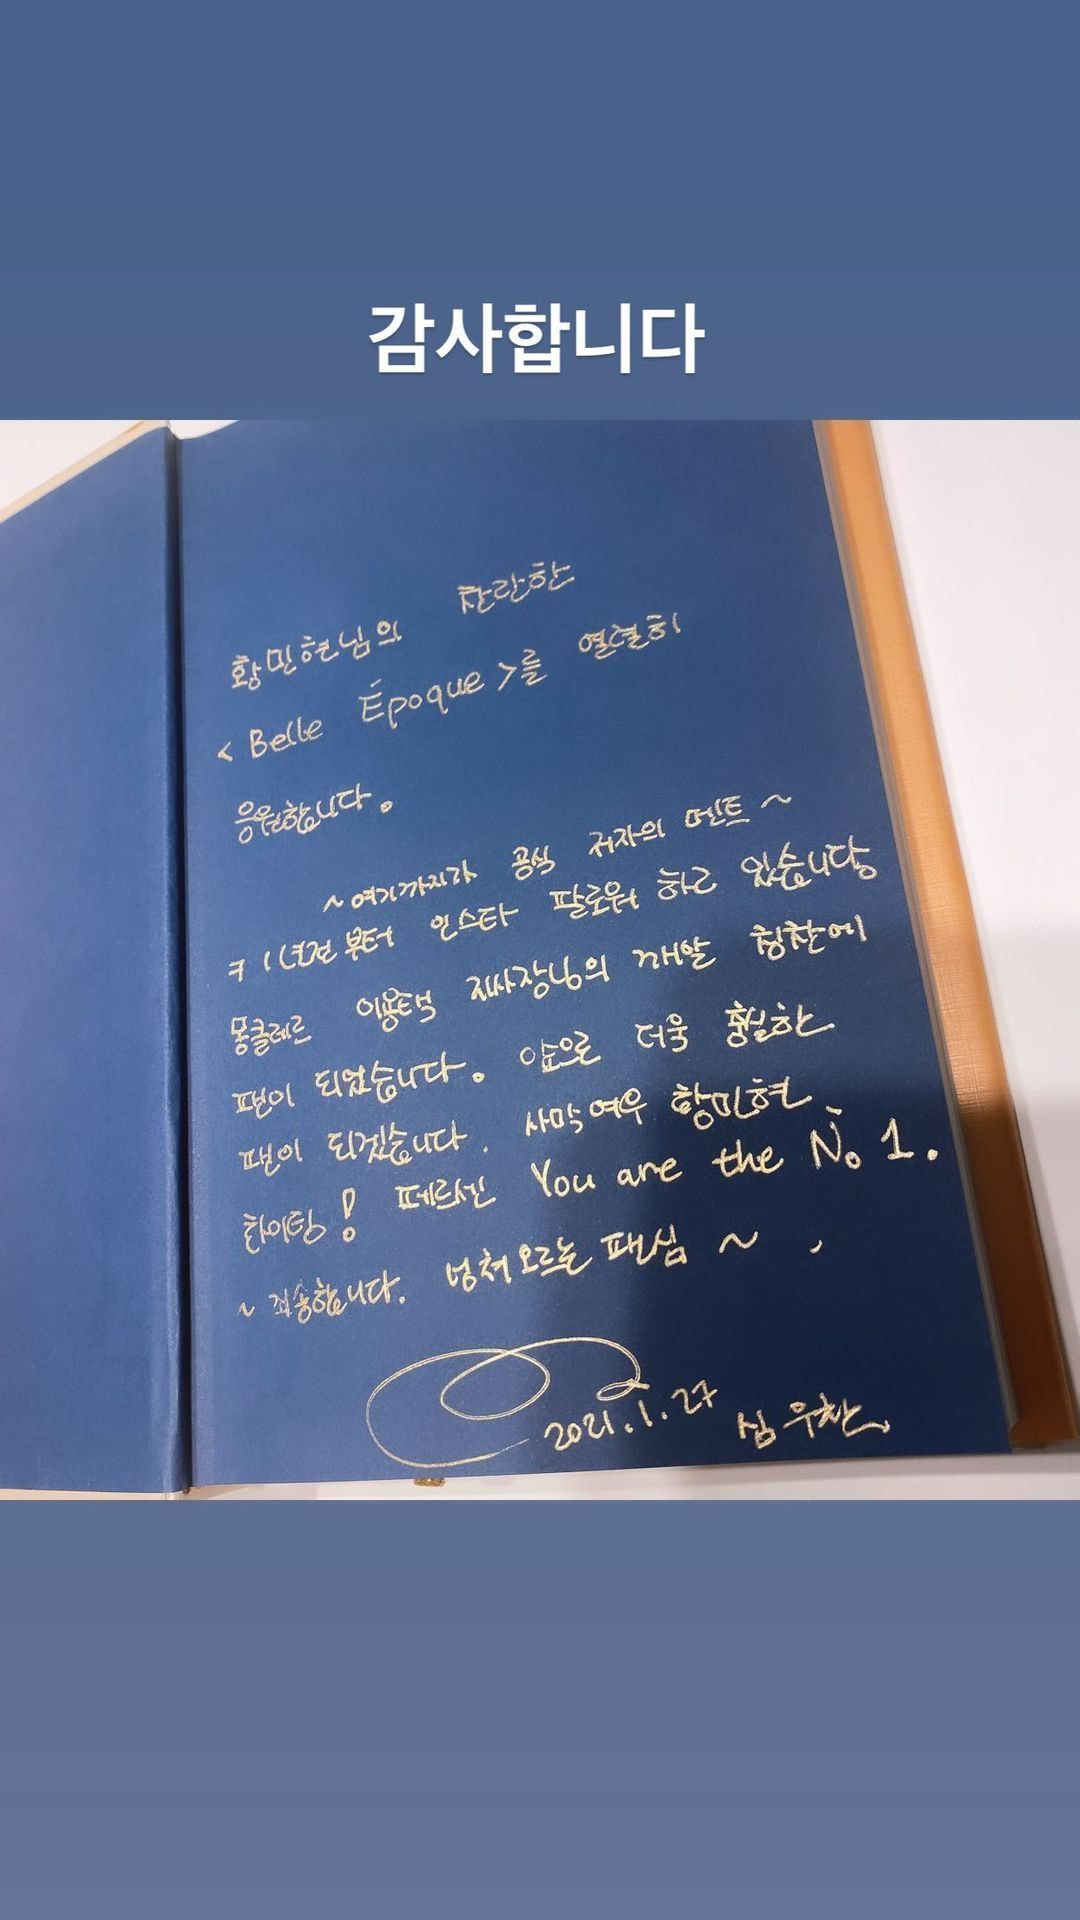 감사합니다
황민현님의 찬란한
< Belle Époque >를 열렬히
응원합니다.
~여기까지가 공식 저자의 멘트~
ㅋ 1년전부터 인스타 팔로워 하고 있습니당
몽클레르 이용택 지사장님의 깨알 칭찬에
팬이 되었습니다. 앞으로 더욱 훌륭한
팬이 되겠습니다. 사막여우 황민현
화이팅! 페르센 You are the No 1.
~ 죄송합니다. 넘쳐오르는 팬심 ~
2021.1.27 심우찬